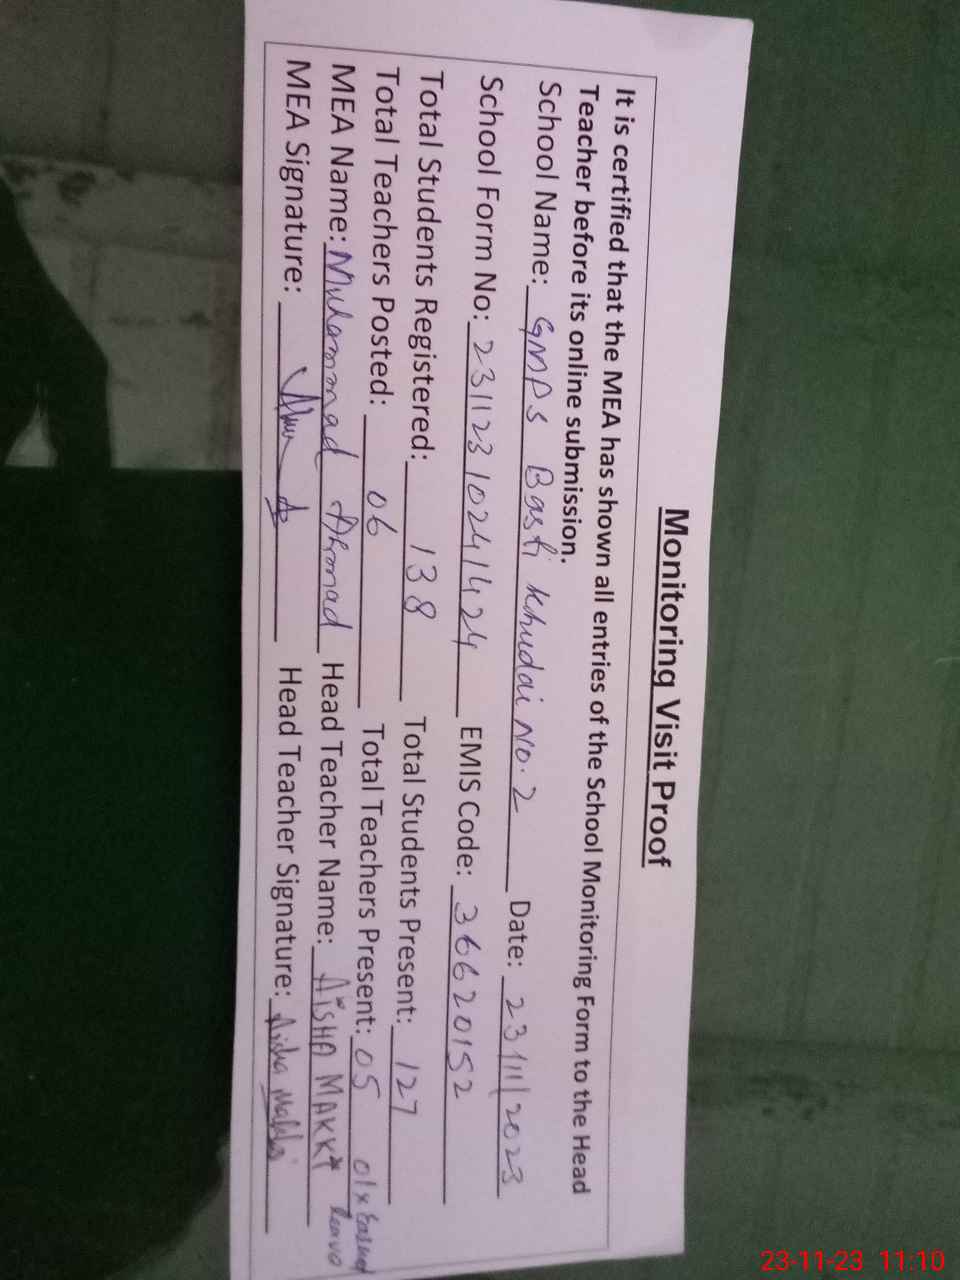 Monitoring Visit Proof
It is certified that the MEA has shown all entries of the School Monitoring Form to the Head
Teacher before its online submission.
School Name: GMPS Basti Khudai No. 2 Date: 23/11/2023
School Form No: 231123 1024 1424 EMIS Code: 36620152
Total Students Registered: 138 Total Students Present: 127
Total Teachers Posted: 06 Total Teachers Present: 05 01x
leave
MEA Name: Muhammad Ahmad Head Teacher Name: AISHA MAKKI
MEA Signature: Head Teacher Signature: Aisha Makki
23-11-23 11:10